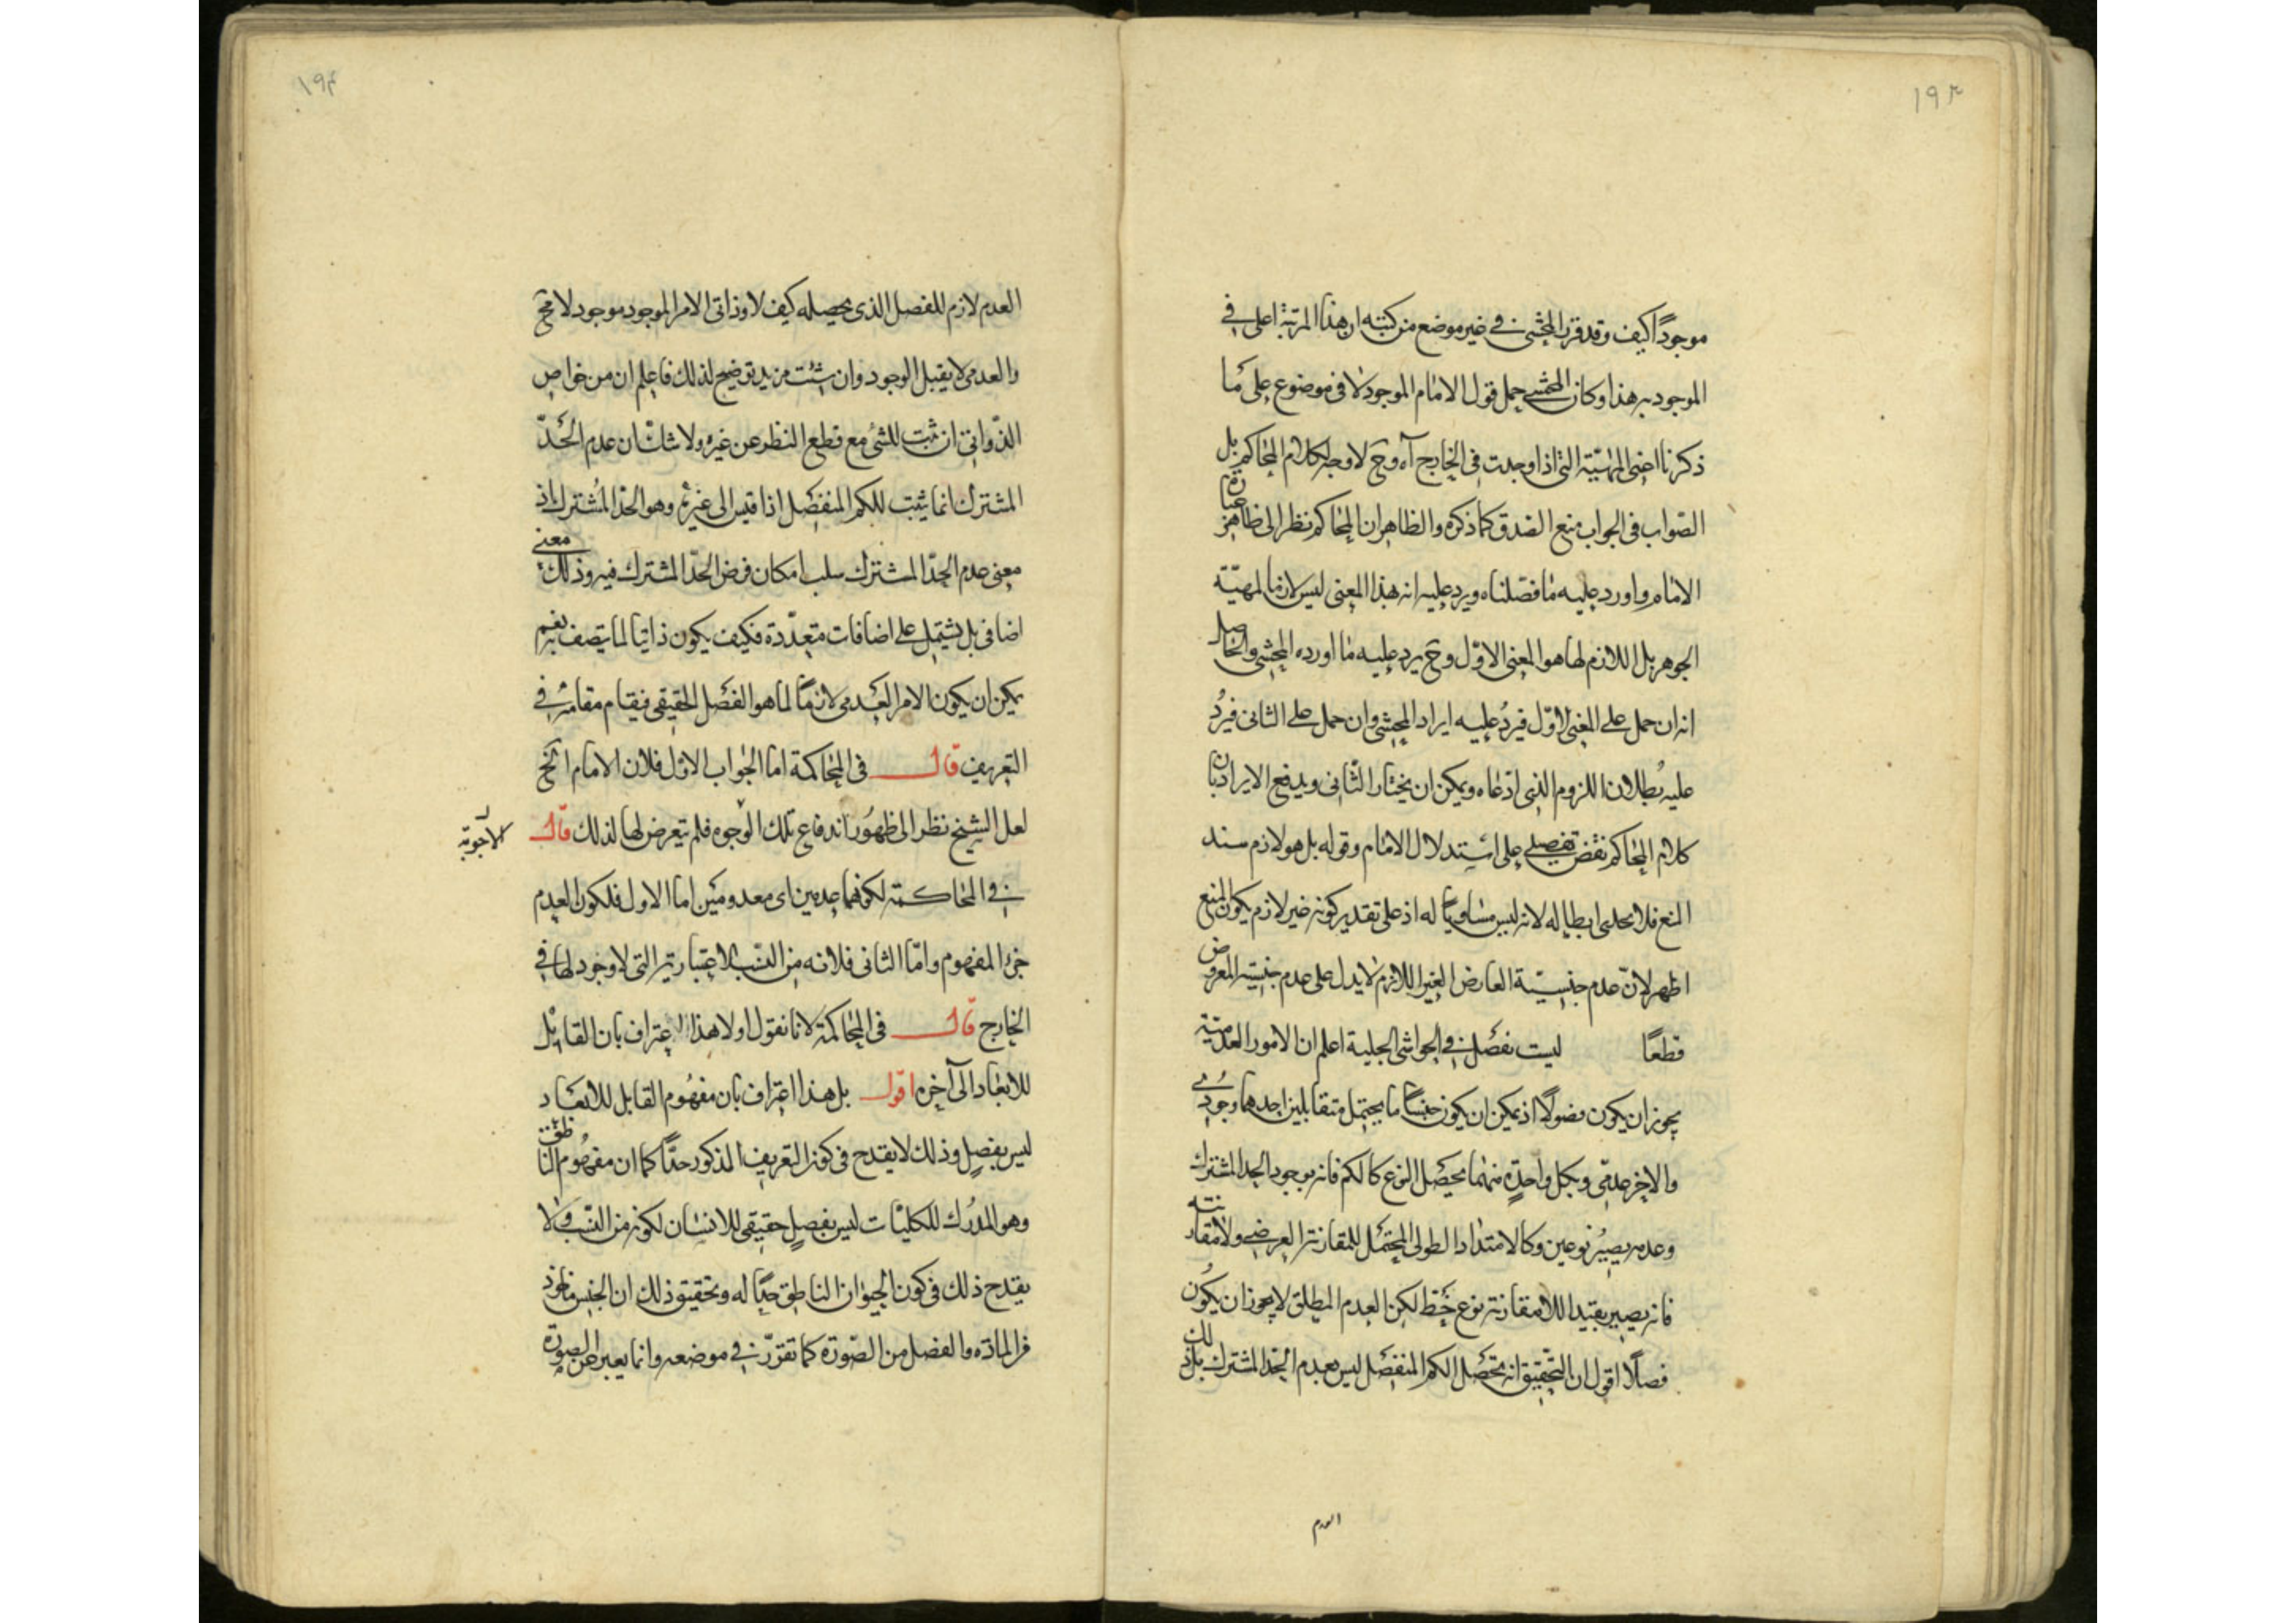 ١٩٣
موجوداً كيف وقد قرر المحشى فى غير موضع من كتبه ان هذا المرتبة اعلى فى
الموجودبر هذا وكان المحشى حمل قول الامام الموجود لا فى موضوع على ما
ذكرنا اعنى المهيّة التى اذا وجدت فى الخارج آه وح لا وجه لكلام المحاكم بل
الصّواب فى الجواب منع الصدق كما ذكره والظاهر ان المحاكم نظر الى ظاهر عبارة
الامام واورد عليه ما فصّلناه ويرد عليه انه بهذا المعنى ليس لازما لمهيّة
الجوهر بل اللازم لها هو المعنى الاوّل وح يرد عليه ما اورده المحشى والحاصل
انه ان حمل على المعنى الاوّل فيردُ عليه ايراد المحشى وان حمل على الثانى فيردُ
عليه بُطلان اللزوم الذى ادّعاه ويمكن ان يختار الثّانى ويدفع الايراد بان
كلام المحاكم نقض تفصيلى على استدلال الامام وقوله بل هو لازم سند
المنع فلا يجدى ابطاله لانه ليس مساوياً له اذ على تقدير كونه غير لازم يكون المنع
اظهر لانّ عدم جنسيّة العارض الغير اللازم لا يدل على عدم جنسيّة المعروض
قطعًا ليست بفصل فى الحواشى الجليلة اعلم ان الامور العدميّة
يجوز ان يكون فصولًا اذ يمكن ان يكون جنساً ما يحتمل متقابلين احدهما وجودى
والاخر عدمّى وبكل واحدة منهما يحصّل النوع كالكم فانه بوجود الحد المشترك
وعدمه يصير نوعين وكالامتداد الطولى المحتمل للمقارنة العرضى ولامقارنته
فانه يصير بقيد اللامقارنة نوع خط لكن العدم المطلق لا يجوز ان يكون
فصلًا اقول ان التّحقيق انه تحصّل الكم المنفصل ليس بعدم الحد المشترك بل ذلك
العدم
١٩٤
العدم لازم للفصل الذى يحصله كيف لا وذاتى الامر الموجود موجود لا مح
والعدمى لا يقبل الوجود وان شئت مزيد توضيح لذلك فاعلم ان من خواص
الذّواتى ان ثبت للشئ مع قطع النظر عن غيره ولا شك ان عدم الحدّ
المشترك انما يثبت للكم المنفصل اذا قيس الى غيره وهو الحد المشترك اذ
معنى عدم الحدّ المشترك سلب امكان فرض الحدّ المشترك فيه وذلك معنى
اضافى بل يشتمل على اضافات متعدّدة فكيف يكون ذاتيا لما يتصف به نعم
يمكن ان يكون الامر العدمى لازمًا لما هو الفصل الحقيقى فيقام مقامه فى
التعريف قال فى المحاكمة اما الجواب الاول فلان الامام الخ
لعل الشيخ نظر الى ظهور اندفاع تلك الوجوه فلم يتعرض لها لذلك قال
الاجوبة
فى المحاكمة لكونهما عدمين اى معدومين اما الاول فلكون العدم
جزء المفهوم وامّا الثانى فلانه من النسب الاعتبارية التى لا وجود لها فى
الخارج قال فى المحاكمة لانا نقول اولا هذا اعتراف بان القابل
للابعاد الى آخره اقول بل هذا اعتراف بان مفهوم القابل للابعاد
ليس بفصل وذلك لا يقدح فى كون التعريف المذكور حدّاً كما ان مفهوم الناطق
وهو المدرك للكليّات ليس بفصل حقيقى للانسان لكونه من النسب ولا
يقدح ذلك فى كون الحيوان الناطق حدّاً له وتحقيق ذلك ان الجنس مأخوذ
من المادّة والفصل من الصّورة كما تقرّر فى موضعه وانما يعبر عن الصورة